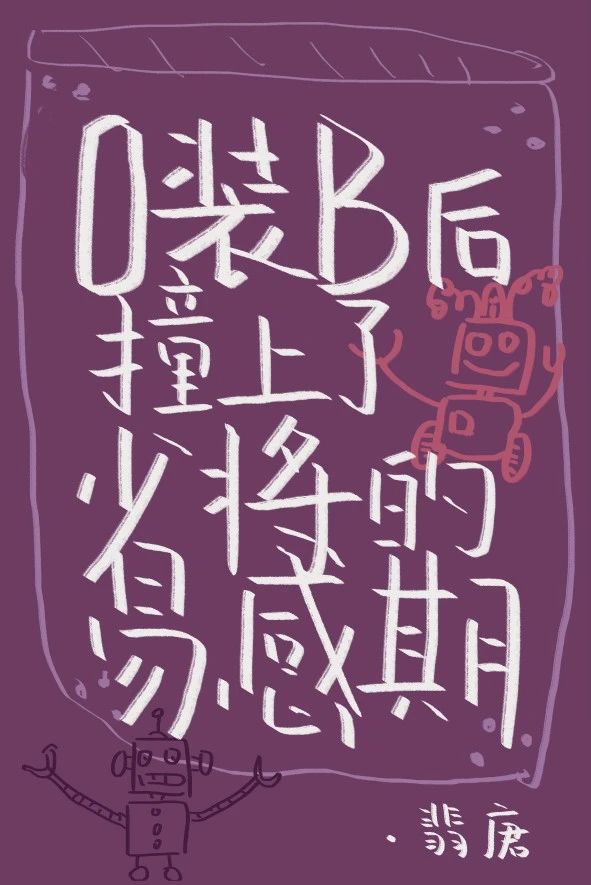 O装B后
撞上了
少将的
易感期
·翡唐